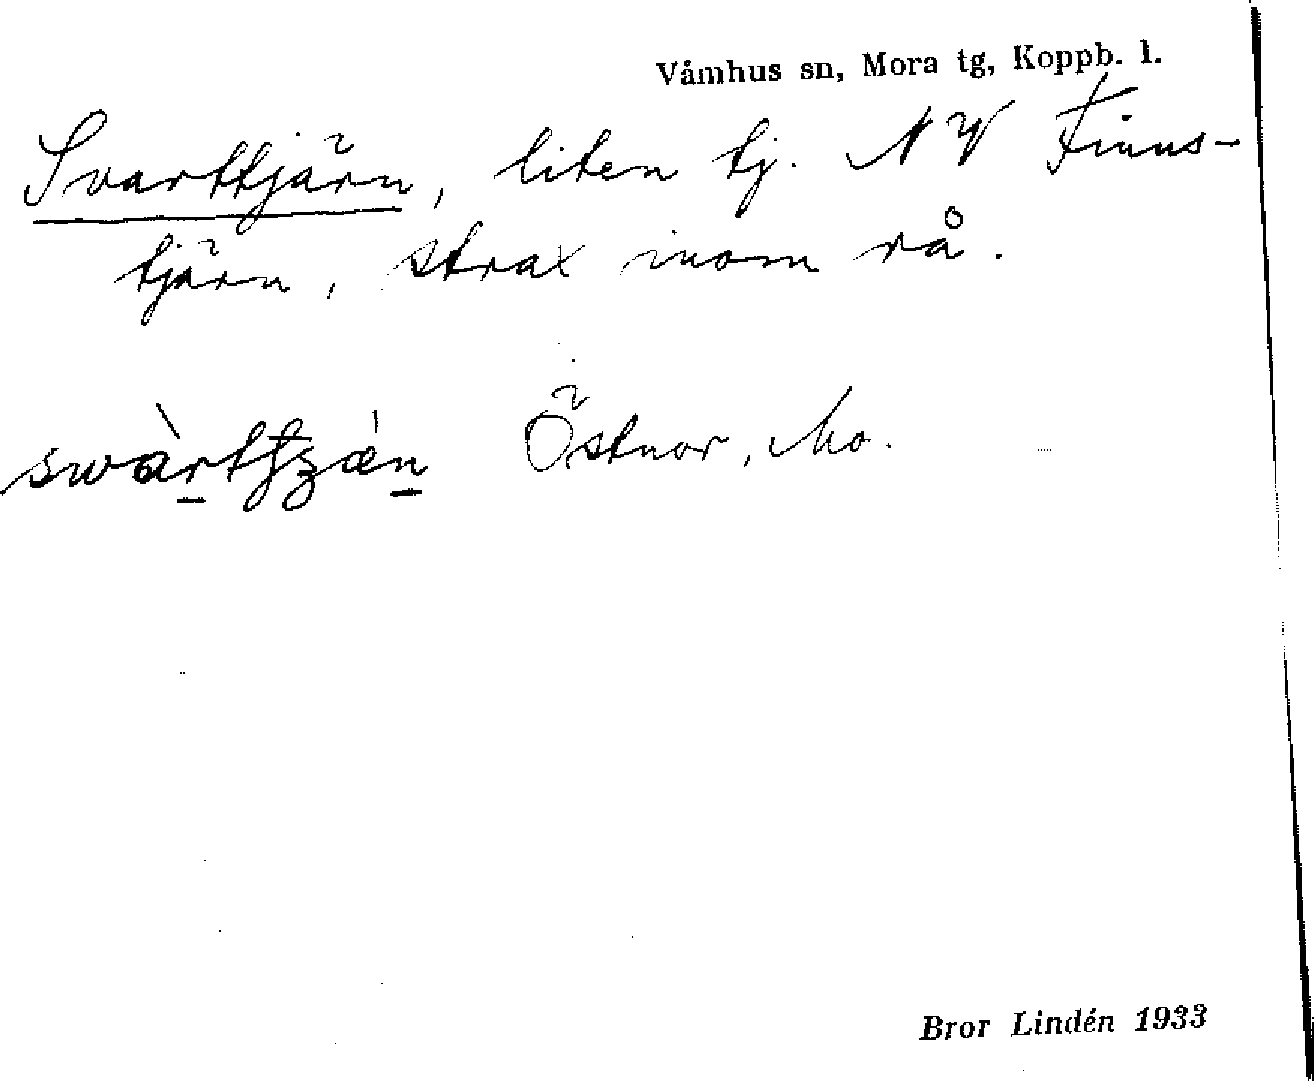 Våmhus sn, Mora tg, Koppb. l.
Svarttjärn, liten tj. NV Finns-
tjärn, strax inom rå.
Östnor, Mo.
Bror Lindén 1933